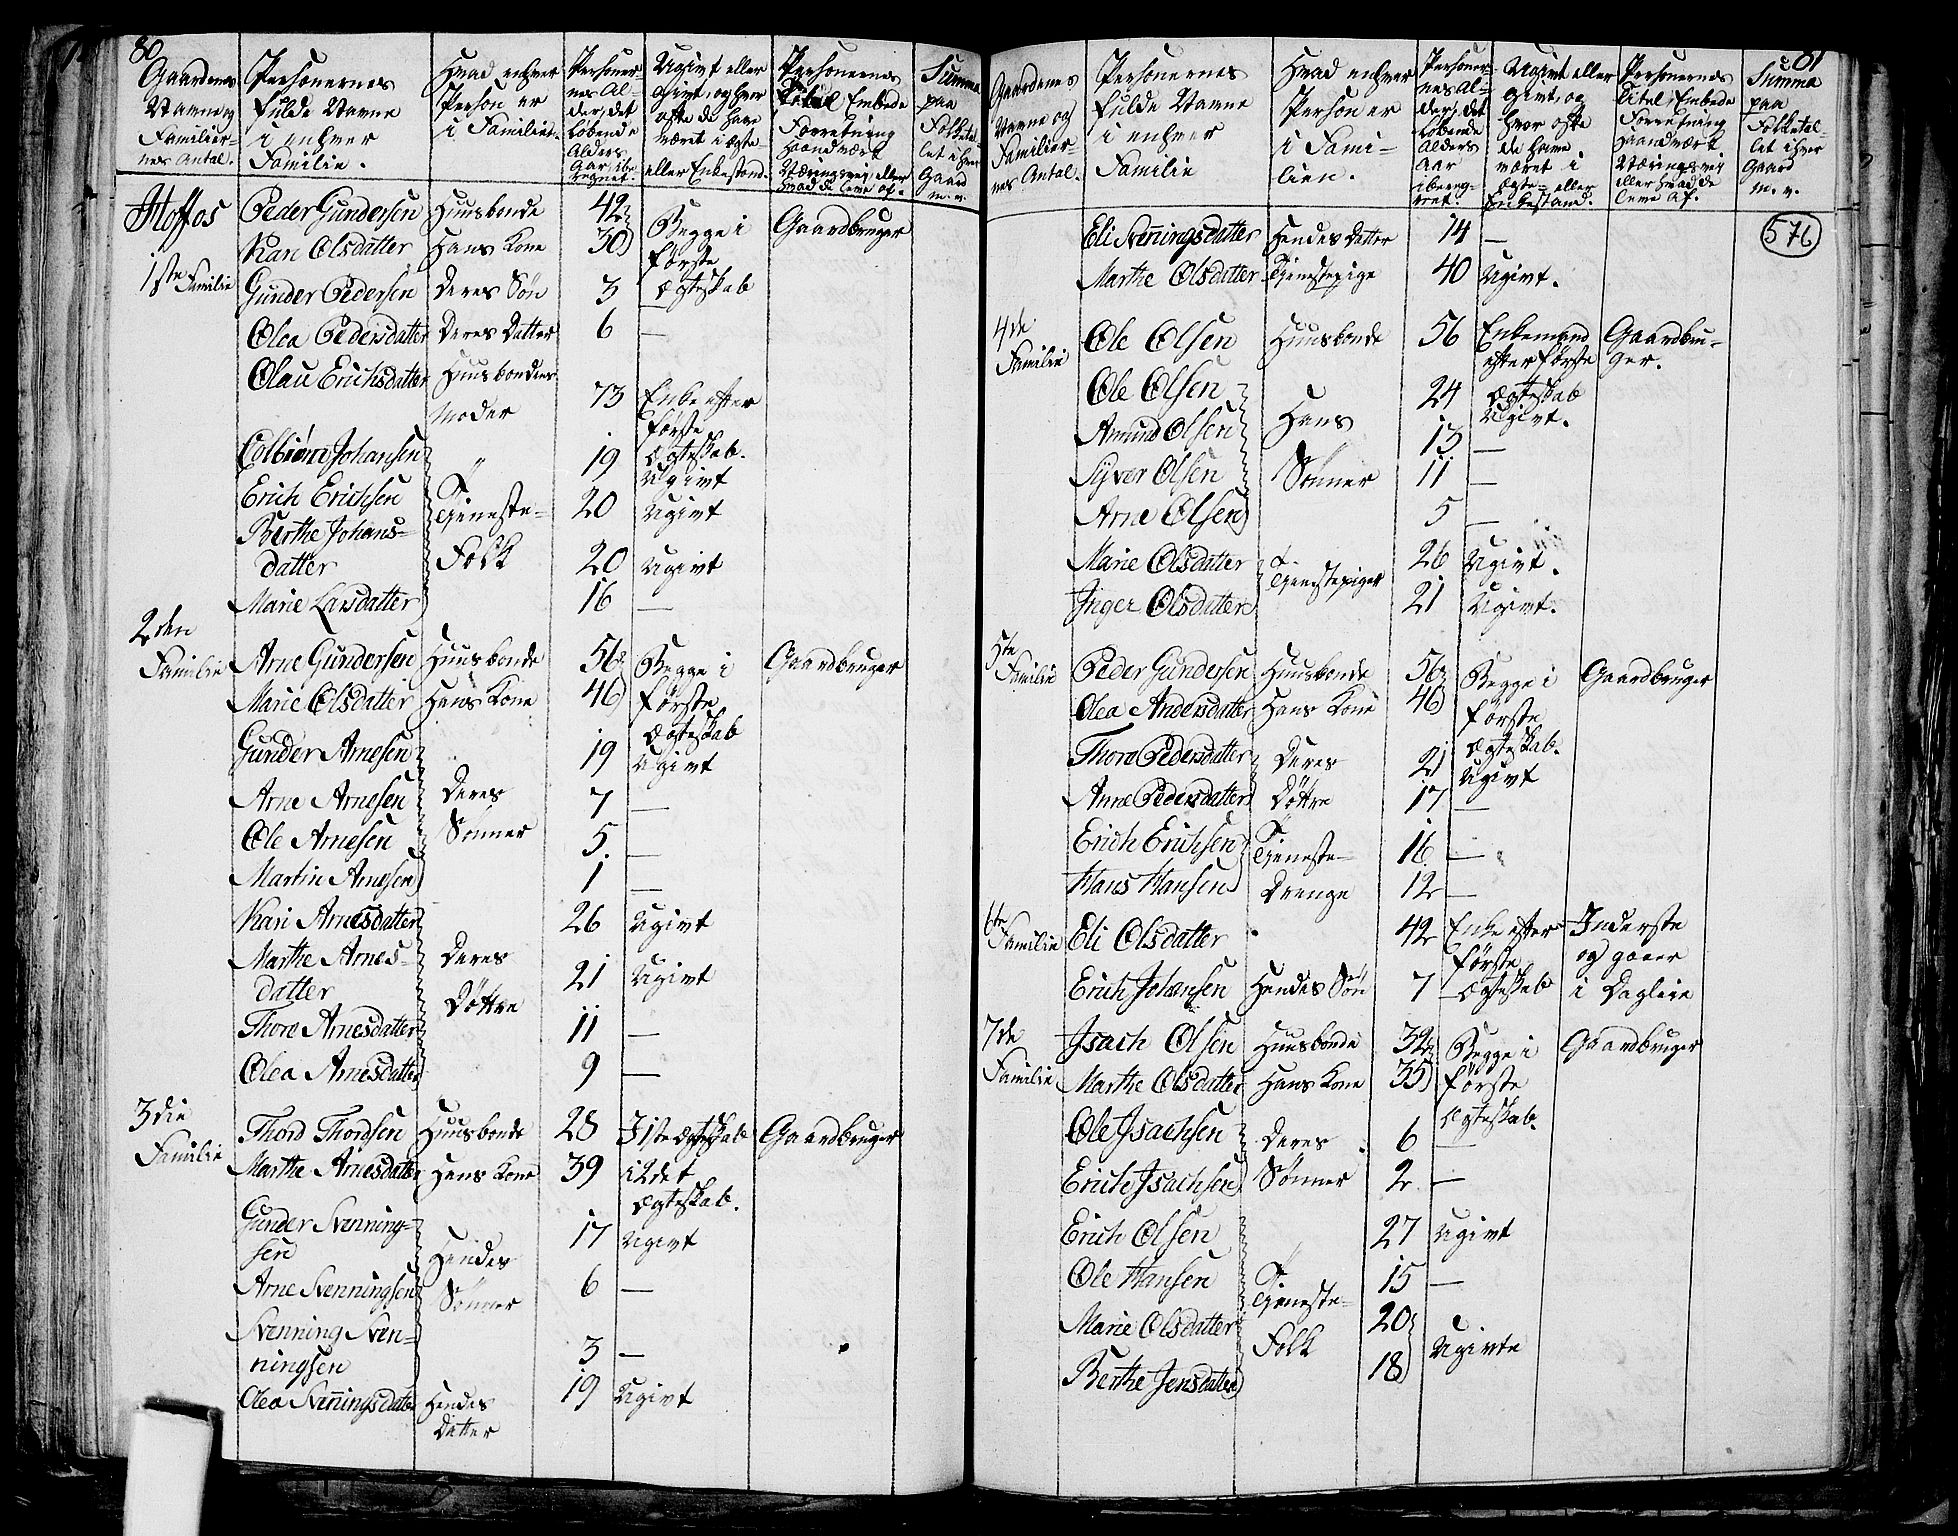 80
Gaardenes Navne og Familiernes Antal.
Personernes fulde Navne i enhver Familie.
Hvad enhver Person er i Familien.
Personernes Alder, det løbende Alders Aar iberegnet.
Ugivt eller givt, og hvor ofte de have været i Ægte eller Enkestand.
Personernes Titel Embede Forretning Haandværk Næringsvei eller hvad de leve af.
Summa paa Folketallet i hver Gaard m. v.
Hoffos
1ste Familie
Peder Gundersen Huusbonde 42 Begge i Gaardbruger
Kari Olsdatter Hans Kone 30 første
Gunder Pedersen Deres Søn 3 Ægteskab
Olea Pedersdatter Deres Datter 6 —
Olau Erichsdatter Huusbondens Moder 73 Enke efter første Ægteskab.
Colbiørn Johansen " 19 Ugivt
Erich Erichsen Tjeneste- 20 Ugivt
Berthe Johans-
datter Folk 20 Ugivt
Marie Larsdatter 16 —
2den
Familie Arne Gundersen Huusbonde 56 Begge i Gaardbruger
Marie Olsdatter Hans Kone 46 første Ægteskab
Gunder Arnesen 19 Ugivt
Arne Arnesen Deres 7 —
Ole Arnesen Sønner 5 —
Martin Arnesen 1 —
Kari Arnesdatter 26 Ugivt
Marthe Arnes- Deres
datter Døttre 21 Ugivt
Thore Arnesdatter 11 —
Olea Arnesdatter 9 —
3die
Familie Thord Thordsen Huusbonde 28 I 1ste Ægteskab Gaardbruger
Marthe Arnesdatter Hans Kone 39 i 2det Ægteskab.
Gunder Svenning-
sen Hendes 17 Ugivt
Arne Svenningsen Sønner 6 —
Svenning Sven-
ningsen 3 —
Olea Svenningsdatter Hendes Datter 19 Ugivt
81
Gaardenes Navne og Familiernes Antal.
Personernes fulde Navne i enhver Familie
Hvad enhver Person er i Familien.
Personernes Alder, det løbende Alders Aar iberegnet.
Ugivt eller givt, og hvor ofte de have været i Ægte- eller Enkestand.
Personernes Titel Embede Forretning Haandværk Næringsvei eller hvad de leve af.
Summa paa Folketallet i hver Gaard m. v.
576
Eli Svenningsdatter Hendes Datter 14 —
Marthe Olsdatter Tjenestepige 40 Ugivt.
4de
Familie Ole Olsen Huusbonde 56 Enkemand efter første Ægteskab Gaardbru-
ger.
Ole Olsen 24 Ugivt.
Amund Olsen Hans 13 —
Syver Olsen Sønner 11 —
Arne Olsen 5 —
Marie Olsdatter Tjenestepiger 26 Ugivt.
Inger Olsdatter 21 Ugivt.
5te
Familie Peder Gundersen Huusbonde 56 Begge i Gaardbruger
Olea Andersdatter Hans Kone 46 første Ægteskab.
Thore Pedersdatter Deres 21 Ugivt
Anne Pedersdatter Døttre 17 —
Erich Erichsen Tjeneste- 16 —
Hans Hansen Drenge 12 —
6te
Familie Eli Olsdatter 42 Enke efter Inderste
første og gaaer
Erich Johansen Hendes Søn 7 — Ægteskab i Dagleie
7de
Familie Isach Olsen Huusbonde 32 Begge i Gaardbruger
Marthe Olsdatter Hans Kone 35 første Ægteskab.
Ole Isachsen Deres 6 —
Erich Isachsen Sønner 2 —
Erich Olsen 27 Ugivt
Ole Hansen Tjeneste- 15 —
Marie Olsdatter Folk 20 Ugivte
Berthe Jensdatter 18